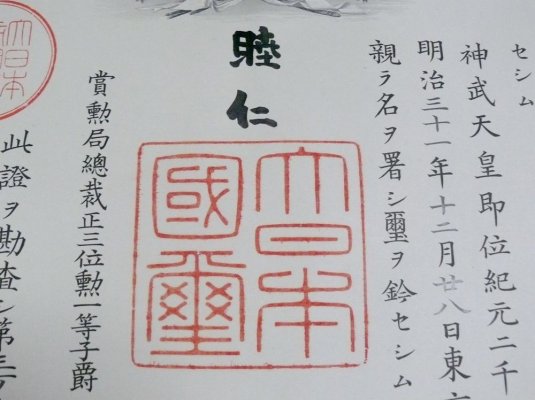 セシム
神武天皇即位紀元二千
明治三十一年十二月廿八日東
親ラ名ヲ署シ璽ヲ鈐セシム
睦仁
大日本
國璽
賞勲局總裁正三位勲一等子爵
大日本
此證ヲ勘査シ第三